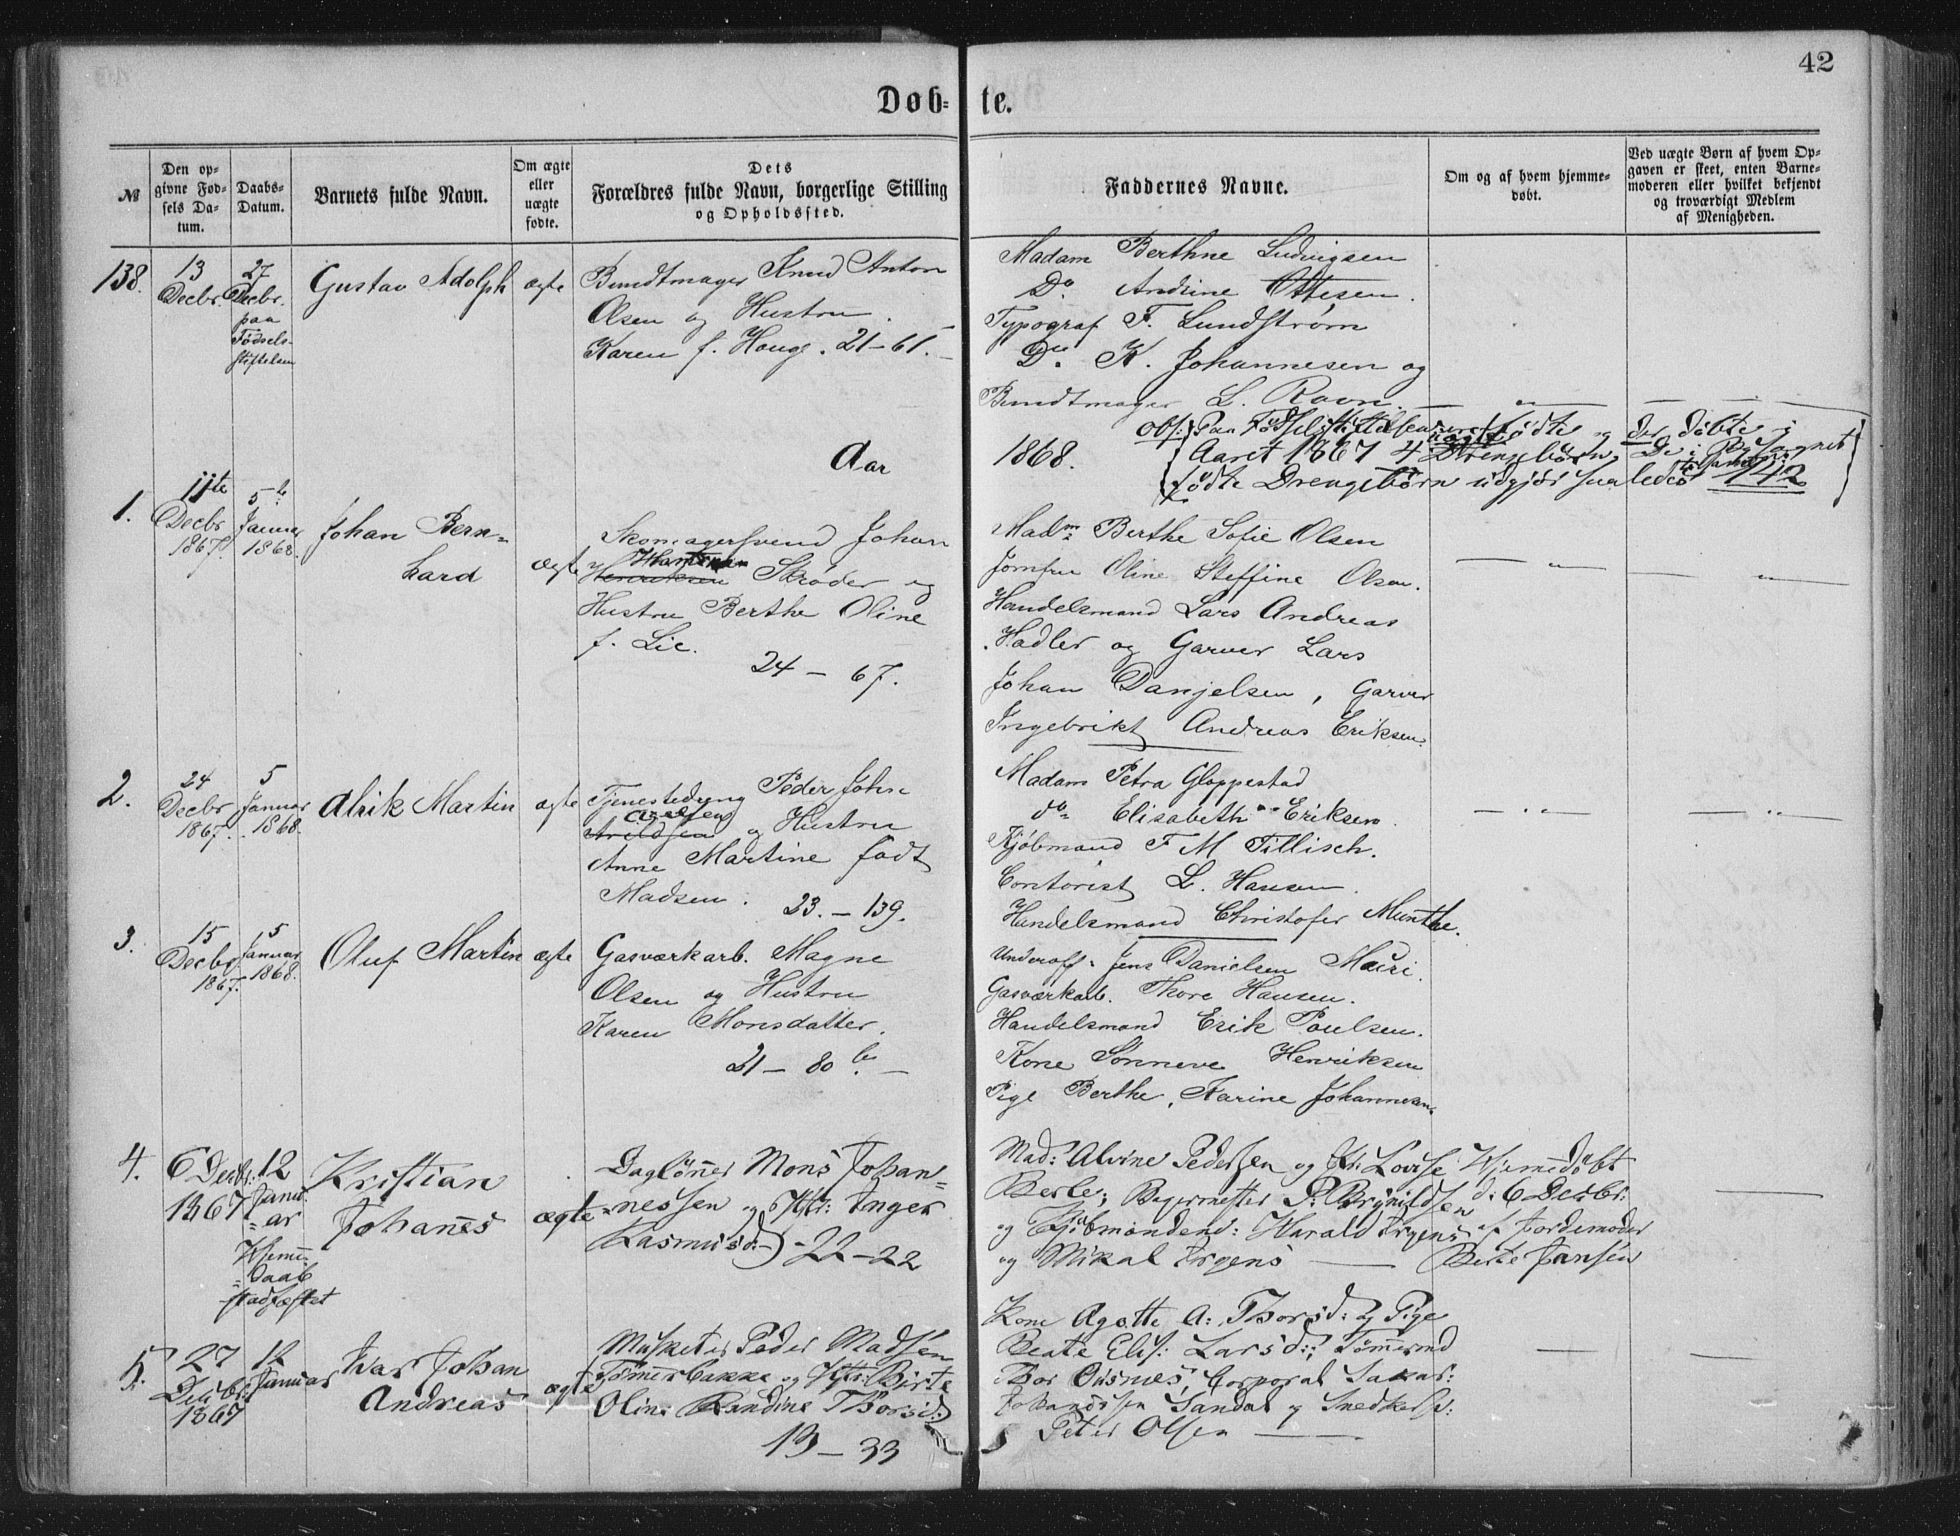 42
Døb- te.
№
Den op-
givne Fød-
sels Da-
tum.
Daabs-
Datum.
Barnets fulde Navn.
Om ægte
eller
uægte
fødte.
Dets
Forældres fulde Navn, borgerlige Stilling
og Opholdssted.
Faddernes Navne.
Om og af hvem hjemme-
døbt.
Ved uægte Børn af hvem Op-
gaven er skeet, enten Barne-
moderen eller hvilket bekjendt
og troværdigt Medlem
af Menigheden.
138.
13
Decbr.
27
Decbr.
paa
Fødsels-
stiftelsen
Gustav Adolph
ægte
Bundtmager Knud Anton
Olsen og Hustru
Karen f. Haug. 21-61.
Madam Berthne Ludvigsen
Do. Andrine Ottesen.
Typograf F. Lundstrøm
Do. K. Johannesen og
Bundtmager L. Ravn.
Aar 1868.
Obs: Paa Fødselsstiftelsen fødte og der døbte i
Aaret 1867 4 Drengebørn; De i
fødte Drengebørn udgjør saaledes 142
1.
11te
Decbr
1867.
5te
Januar
1868
Johan Bern-
hard
ægte
Skomagersvend Johan
Henriksen Skrøder og
Hustru Berthe Oline
f. Lie.
24 - 67.
Madm Berthe Sofie Olsen
Jomfru Oline Steffine Olsen.
Handelsmand Lars Andreas
Hadler og Garver Lars
Johan Danjelsen, Garver
Ingebrikt Andreas Eriksen.
2.
24
Decbr
1867.
5
Januar
1868.
Alrik Martin
ægte
Tjenestedreng Peder John
Arildsen og Hustru
Anne Martine født
Madsen. 23. - 139.
Madam Petra Gloppestad
do Elisabeth Eriksen.
Kjøbmand F M Tillisch.
Contorist L. Hansen.
Handelsmand Christofer Munthe.
3.
15
Decbr
1867.
5
Januar
1868.
Oluf Martin
ægte
Gasværkarb. Magne
Olsen og Hustru
Karen Monsdatter.
21 - 80 b.
Underoff. Jens Danielsen Mauri.
Gasværkarb. Thore Hansen.
Handelsmand Erik Poulsen.
Kone Sønneve Henriksen
Pige Berthe Karine Johannesen.
4.
6 Decbr:
1867
12
Janu-
ar
Hjemme-
daab
stadfæstet
Kristian
Johanes
ægte
Dagløner Mons Johan-
nessen og Hstr: Inger
Rasmusd: - 22-22
Mad: Alvine Pedersen og Jfr: Lovise
Berle; Bagermester P: Brynildsen
og Kjøbmændene: Harald Irgens
og Mikal Irgens
Hjemedøbt
d: 6 Decbr:
af Jordemoder
Berte Jansen
5.
27
Decbr:
1867
12
Januar
Ivar Johan
Andreas
ægte
Musketer Peder Madsen
Tømerbakke og Hstr: Birte
Oline Randine Thorsd:
13-33
Kone Agotte A: Thorsd: og Pige
Beate Elis: Larsd:; Tømermd
Thor Odsnes, Corporal Sakar:
Johanessen Sandal og Snedkersv:
Peter Olsen